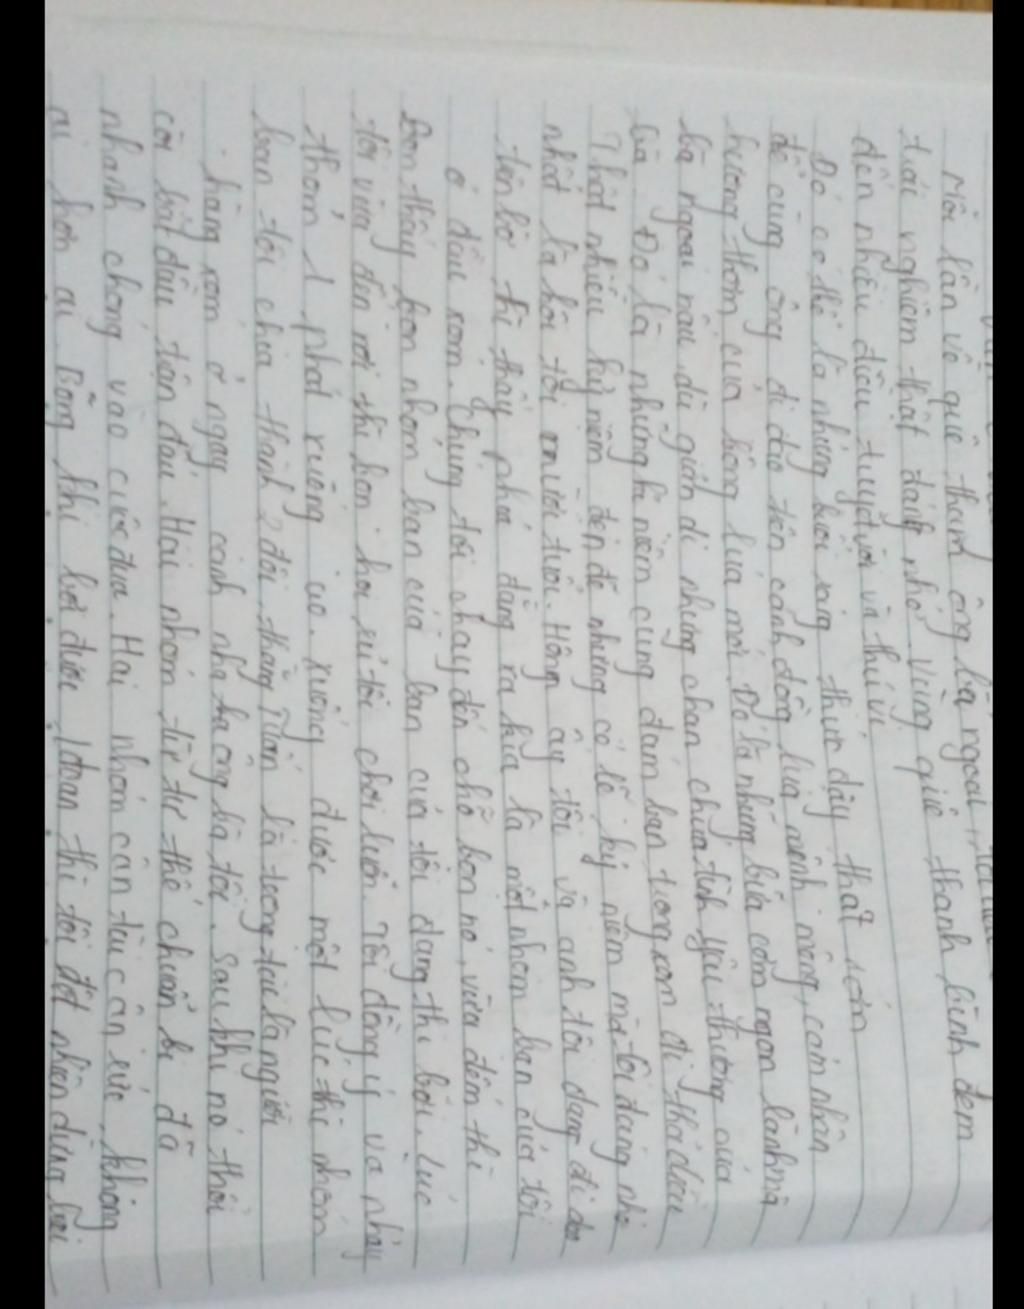 Mỗi lần về quê thăm ông bà ngoại, tôi
trải nghiệm thật đáng nhớ. Vùng quê thanh bình đem
đến nhiều điều tuyệt vời và thú vị
Đó có thể là những buổi sáng thức dậy thật sớm
để cùng ông đi dạo trên cánh đồng lúa mênh mông, cảm nhận
hương thơm của bông lúa mới. Đó là những bữa cơm ngon lành mà
bà ngoại nấu, dù giản dị nhưng chan chứa tình yêu thương của
bà. Đó là những kỉ niệm cùng đám bạn trong xóm đi thả diều
Thật nhiều kỷ niệm đẹp đẽ nhưng có lẽ kỷ niệm mà tôi đáng nhớ
nhất là hồi tôi mười tuổi. Hôm ấy tôi và anh tôi đang đi dạo
trên bờ thì thấy phía đằng xa kia là một nhóm bạn của tôi
ở đầu xóm. Chúng tôi chạy đến chỗ bọn nó, vừa đến thì
bọn thấy bọn nhóm bạn của bạn của tôi đang thi bơi. Lúc
tôi vừa đến nơi thì bọn hỏi rủ tôi chơi luôn. Tôi đồng ý và nhảy
thỏm 1 phát xuống ao. Xuống được một lúc thì nhóm
bạn tôi chia thành 2 đội, thằng Tuấn là trọng tài là người
hàng xóm ở ngay cạnh nhà ông bà tôi. Sau khi nó thổi
còi bắt đầu trận đấu. Hai nhóm từ tư thế chuẩn bị đã
nhanh chóng vào cuộc đua. Hai nhóm cân tài cân sức, không
ai hơn ai. Bỗng khi bơi được 1 đoạn thì tôi đột nhiên dừng lại